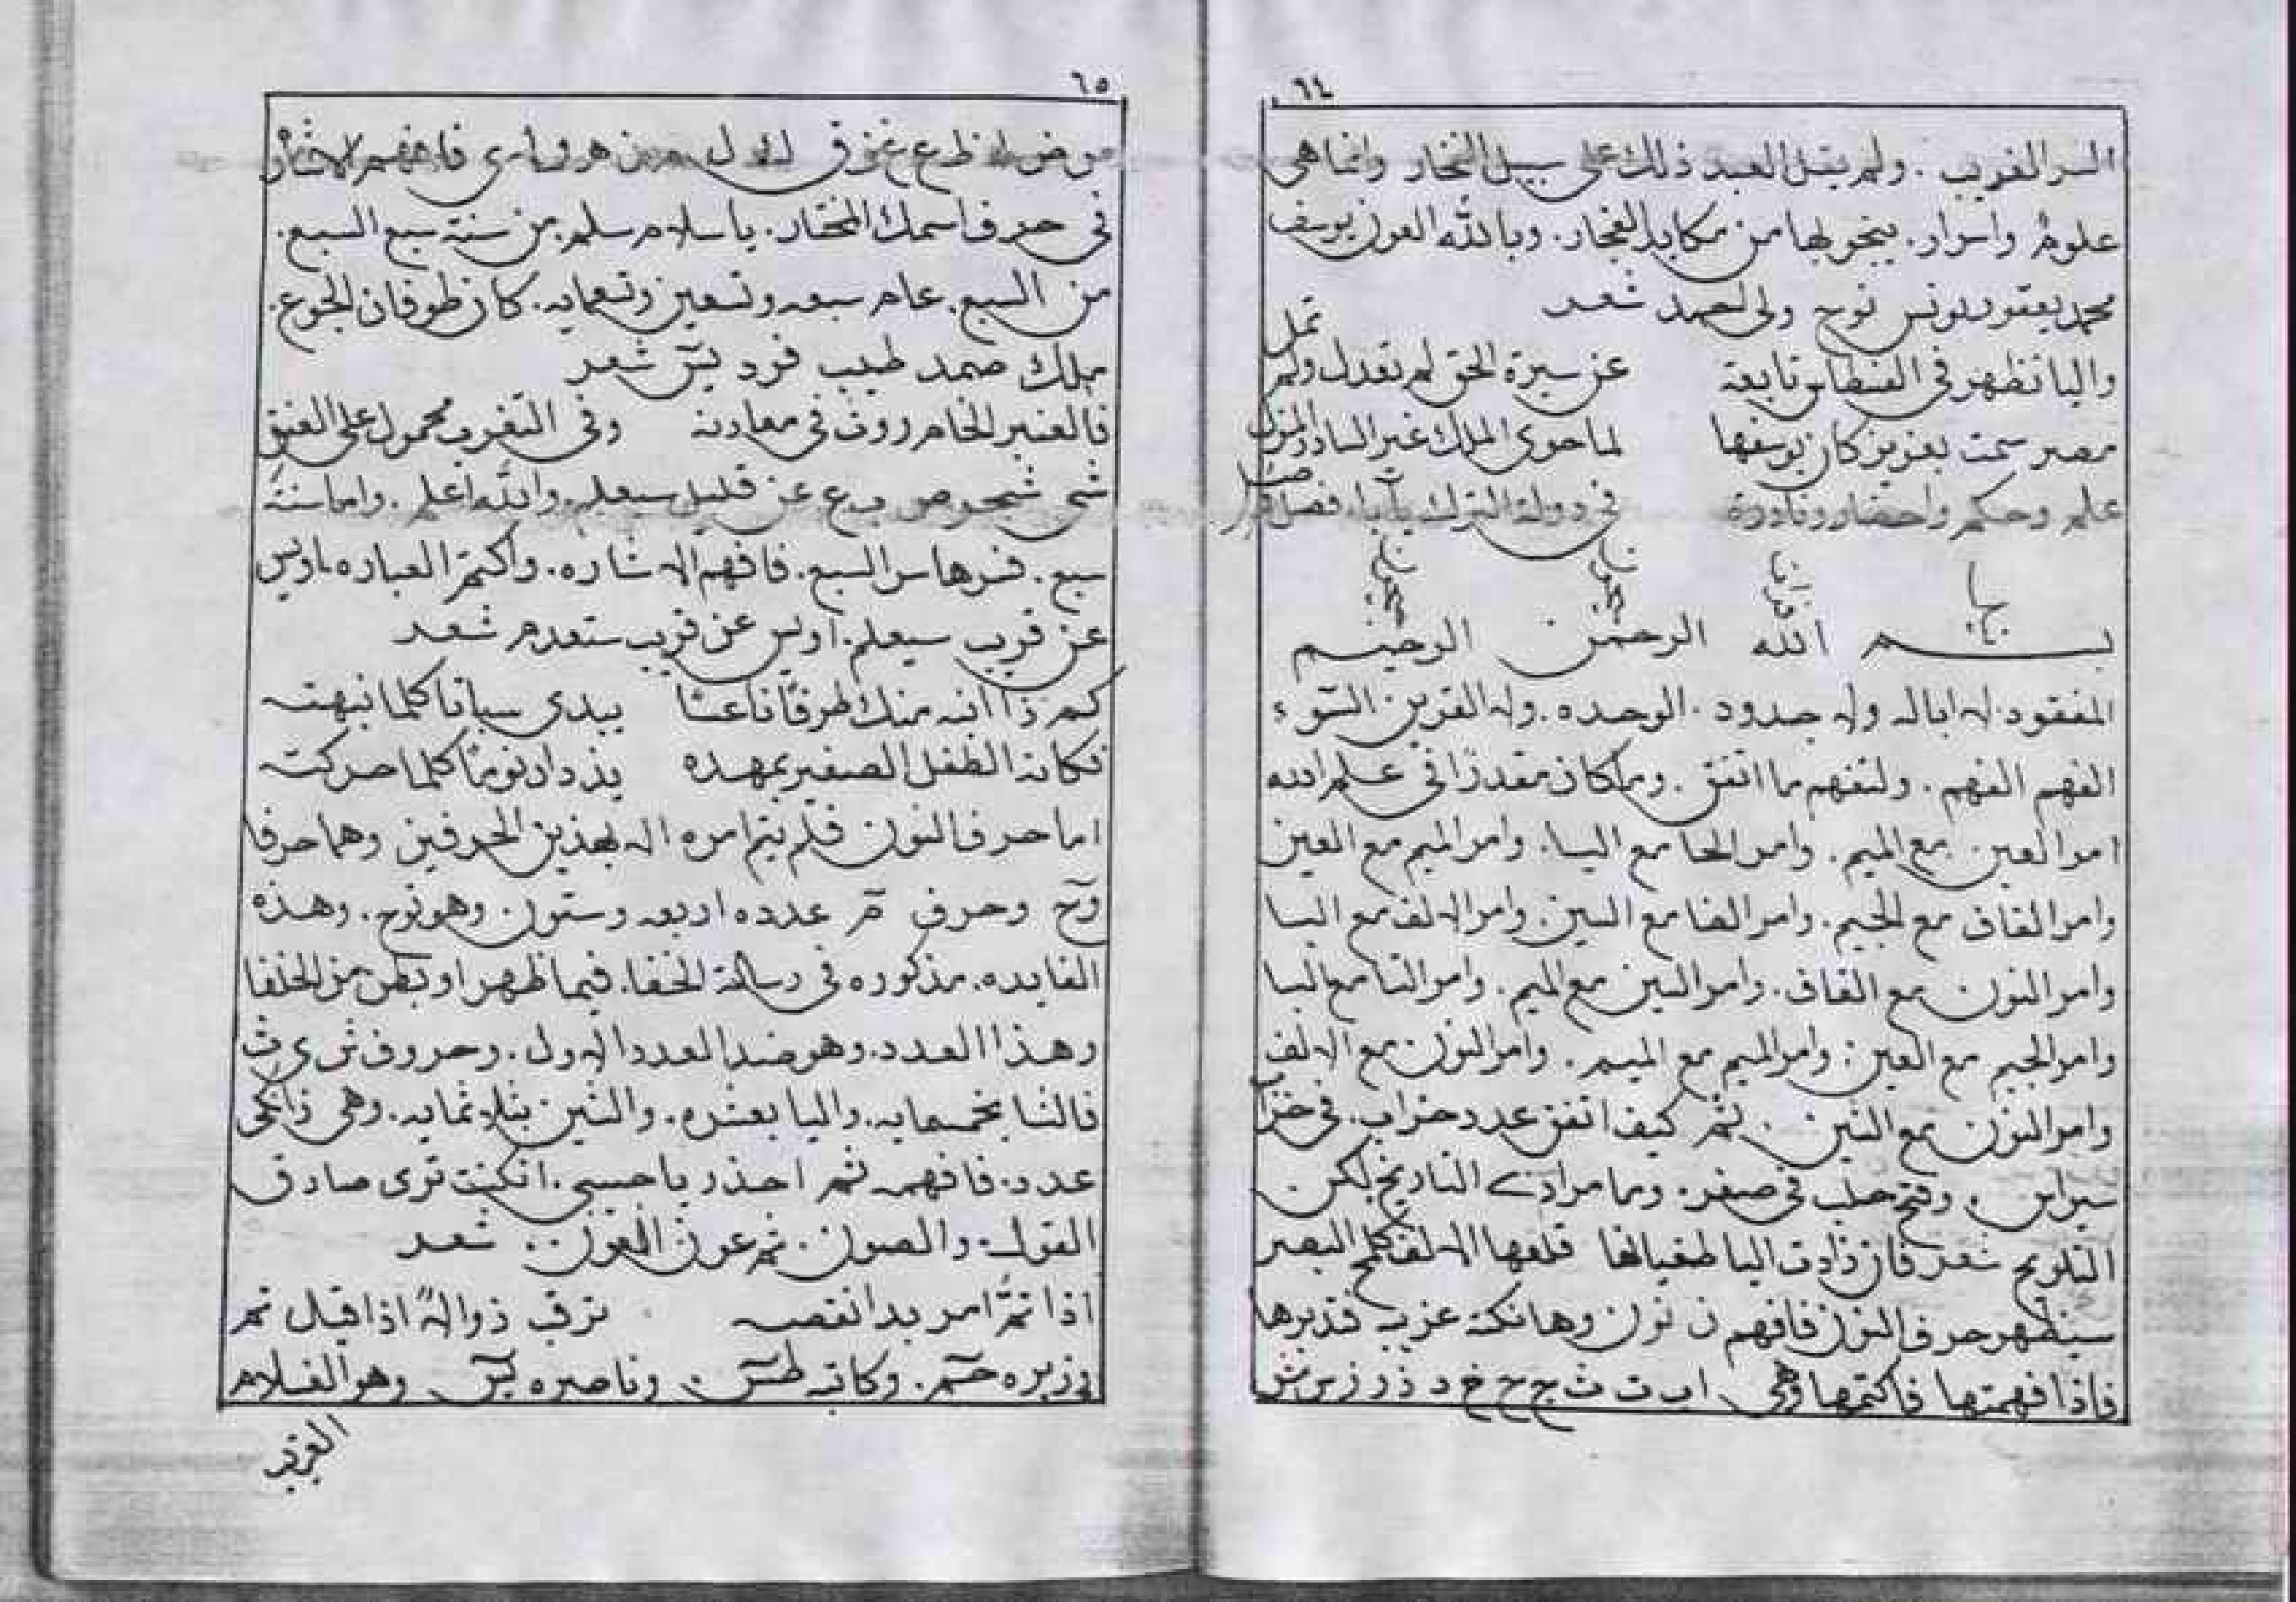 ٦٤
السر الغريب . ولم يقل العبد ذلك على سبيل الفخار وانما هي
علوم واسرار . ينجو بها من مكايد الفجار . وبالله العون يوسف
محمد يعقوب يونس نوح ولي الحمد شعر
واليا تظهر في القسطا وتابعة عن سيرة الحق لم تعدل ولم تمل
مصر سمت بعزيز كان يوسفها لما حوى الملك غير السادة
علم وحكم واحضار ونادرة في دولة الترك فصل
بسم الله الرحمن الرحيم
المفقود . لا اباله ولا جدود . الوحده . ولا القرين السوء
الفهم الفهم . ولتفهم ما اتفق . وما كان مقدرًا في علم الله
امر العين مع الميم . وامر الحا مع اليا . وامر الميم مع العين
وامر القاف مع الجيم . وامر الفا مع السين . وامر الالف مع اليا
وامر النون مع القاف . وامر السين مع الميم . وامر التا مع اليا
وامر الجيم مع العين . وامر الميم مع الميم . وامر النون مع الالف
وامر النون مع الشين . ثم كيف اتفق عدد خراب . في
. وفتح حلب في صفر . وما مرادي التاريخ لكن
التلويح شعر فان زادت اليا طغيانها قلعها الالف كلمح البصر
سيظهر حرف النون فافهم ن نون وها نكتة فتدبرها
فاذا فهمتها فاكتمها وهي اب ت ث ج ح خ د ذ ر ز س ش
٦٥
ص ض ط ظ ع غ ف ق ك ل م ن ه و لا ي فافهم
في حرف اسمك المختار . يا سلام سلم . من سنة سبع السبع .
من السبع . عام سبعه وتسعين وتسعمايه . كان طوفان الجوع .
ملك صمد طيب فرد يس شعر
فالعنبر الخام روث في معادنه وفي التغرب محمول على العنق
عن قليل سيعلم والله اعلم . واما سنة
سبع . فسرها سر السبع . فافهم الاشاره . واكتم العباره
عن قريب سيعلم . اويس عن قريب ستعدم شعر
كم ذا انبه منك طرفًا ناعسًا يبدي سباتا كلما نبهته
فكانه الطفل الصغير بمهده يزداد نومًا كلما حركته
اما حرف النون فلم يتم امره الا بهذين الحرفين وهما حرفا
وح وحرف م عدده اربعه وستون . وهو نوح . وهذه
الفايده . مذكوره في رسالة الخفا . فيما ظهر او بطن من الخلفا
وهذا العدد . وهو ضد العدد الاول . وحروف ش ي ث
فالثا بخمسمايه . واليا بعشره . والشين بثلاثمايه . وهي
عدد . فافهمه ثم احذر يا حسبي . ان كنت ترى صادق
القول . والصون . ثم عون العون . شعر
اذا تمَّ امر بدا نقصه ترقب زوالًا اذا قيل تم
وزيره حم . وكاتبه طس . وناصره يس وهو الغلام